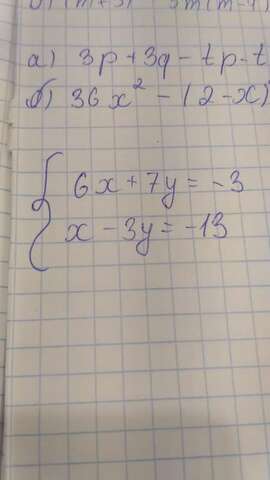 а) 3p + 3q - tp - t
б) 36x² - (2 - x)
6x + 7y = -3
x - 3y = -13